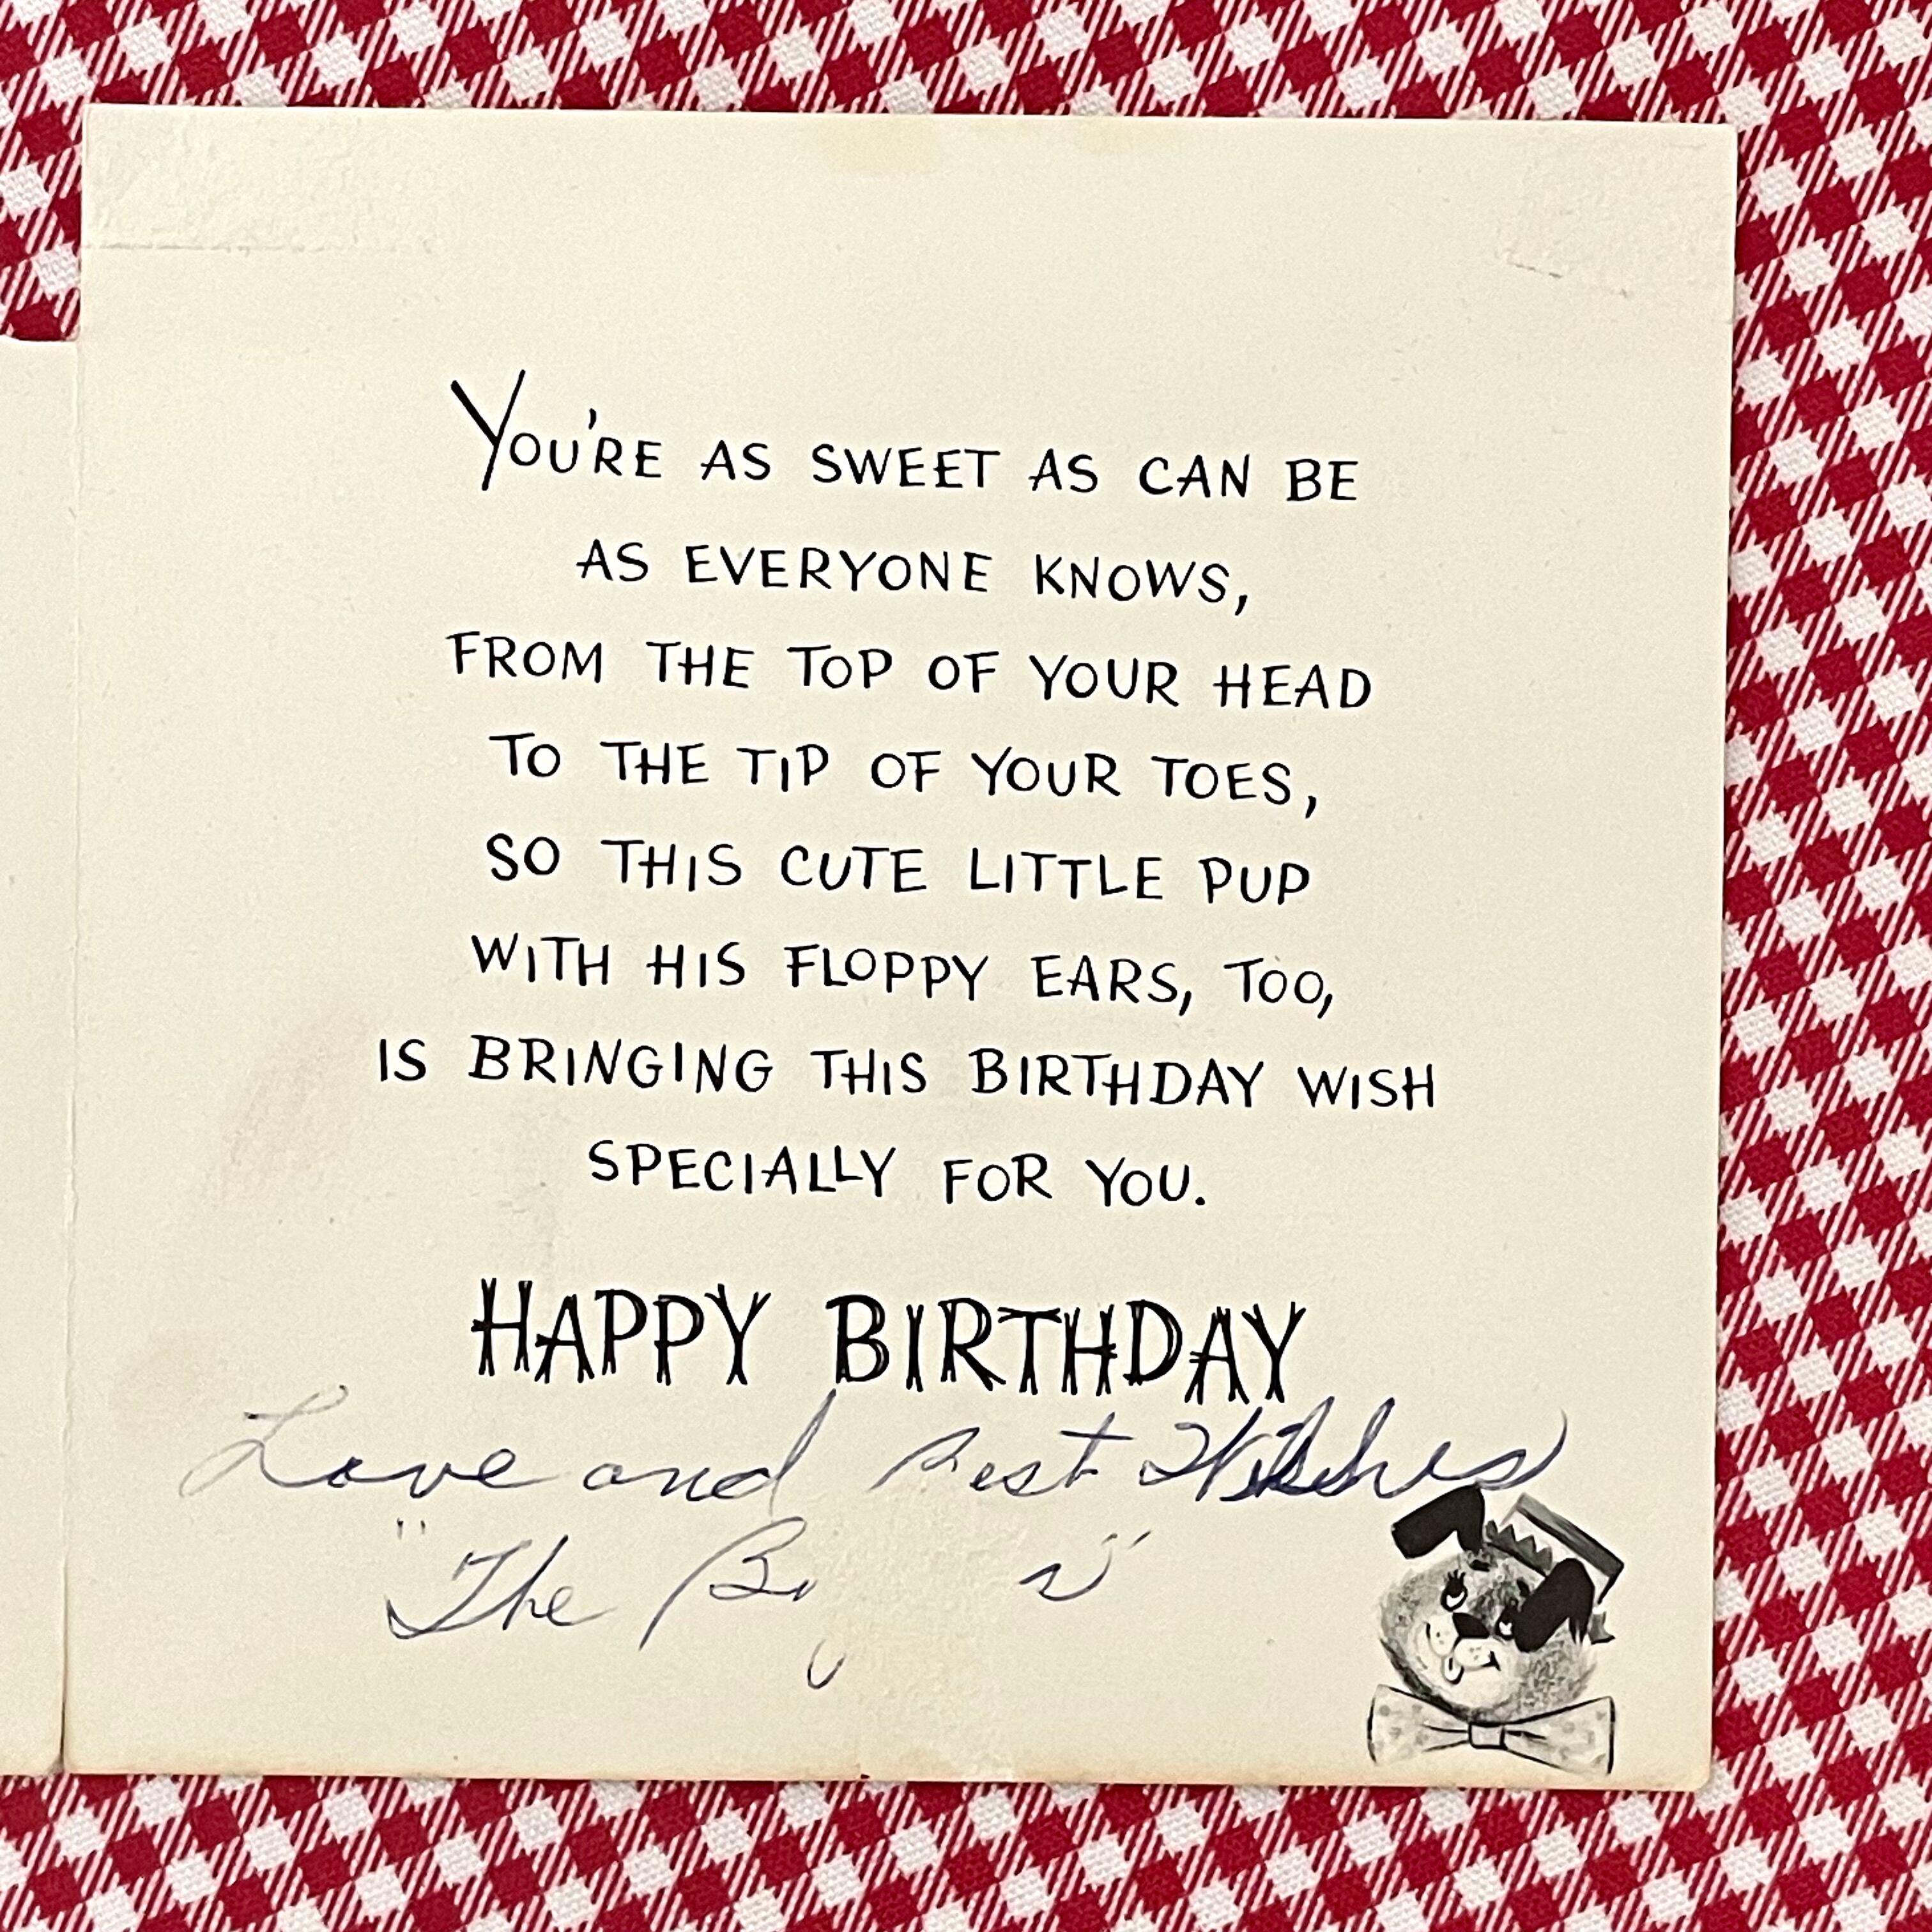 YOU'RE AS SWEET AS CAN BE
AS EVERYONE KNOWS,
FROM THE TOP OF YOUR HEAD
TO THE TIP OF YOUR TOES,
SO THIS CUTE LITTLE PUP
WITH HIS FLOPPY EARS, TOO,
IS BRINGING THIS BIRTHDAY WISH
SPECIALLY FOR YOU.
HAPPY BIRTHDAY
Love and Best Wishes
"The